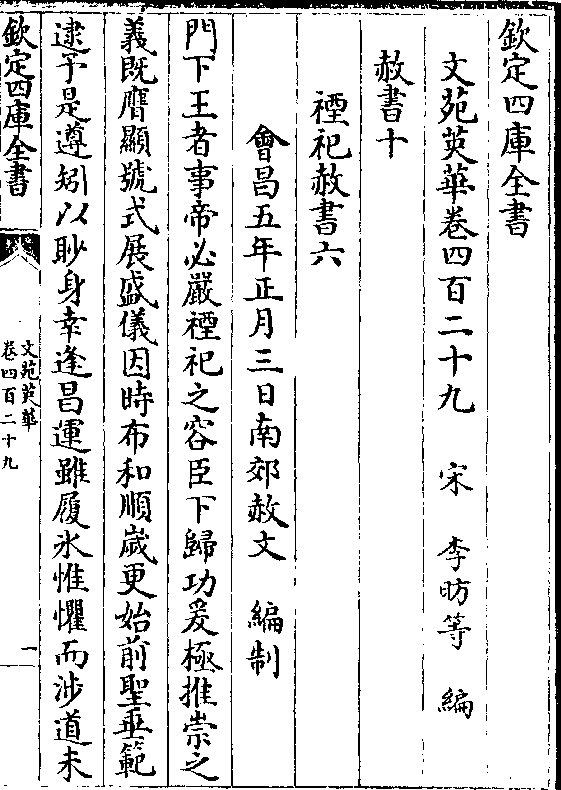 欽定四庫全書
文苑英華卷四百二十九　宋　李昉等　編
赦書十
禋祀赦書六
會昌五年正月三日南郊赦文　編制
門下王者事帝必嚴禋祀之容臣下歸功爰極推崇之
義既膺顯號式展盛儀因時布和順嵗更始前聖垂範
逮予是遵矧以眇身幸逢昌運雖履氷惟懼而涉道未
欽定四庫全書
文苑英華
卷四百二十九
一